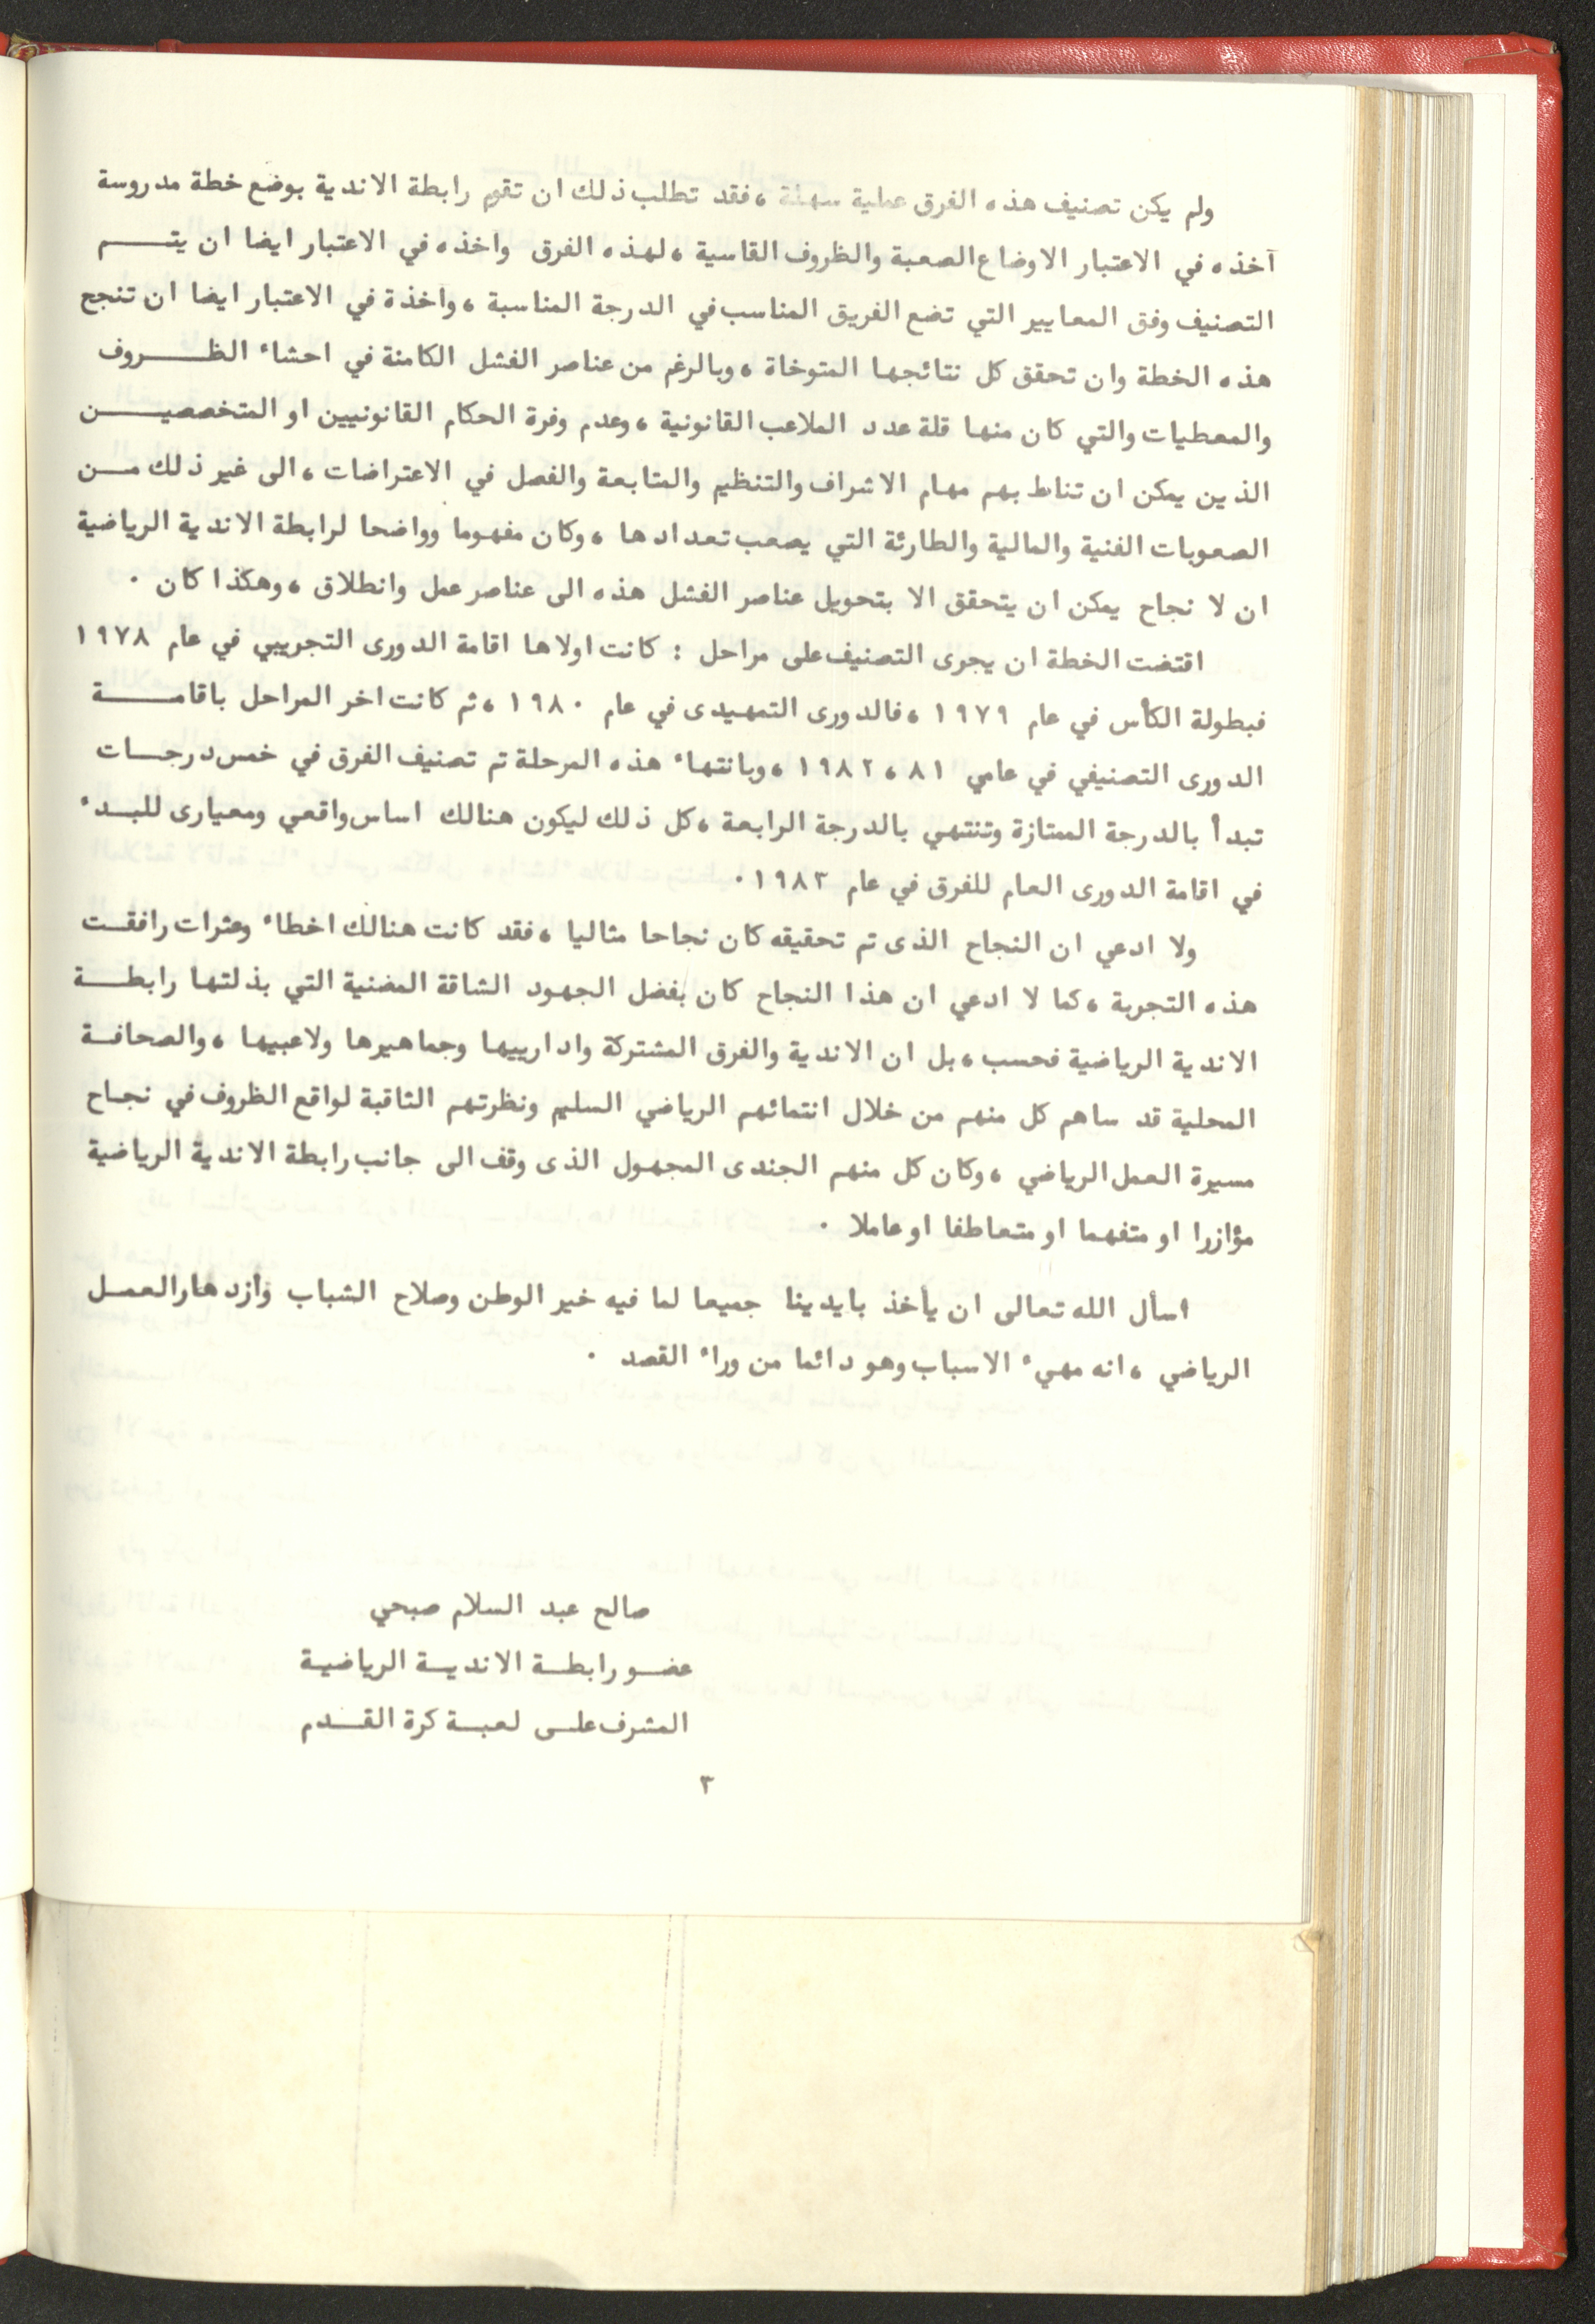 ولم يكن تصنيف هذه الفرق عملية سهلة ، فقد تطلب ذلك ان تقوم رابطة الاندية بوضع خطة مدروسة
آخذه في الاعتبار الاوضاع الصعبة والظروف القاسية ، لهذه الفرق واخذه في الاعتبار ايضا ان يتم
التصنيف وفق المعايير التي تضع الفريق المناسب في الدرجة المناسبة ، واخذة في الاعتبار ايضا ان تنجح
هذه الخطة وان تحقق كل نتائجها المتوخاة ، وبالرغم من عناصر الفشل الكامنة في احشاء الظروف
والمعطيات والتي كان منها قلة عدد الملاعب القانونية ، وعدم وفرة الحكام القانونيين او المتخصصين
الذين يمكن ان تناط بهم مهام الاشراف والتنظيم والمتابعة والفصل في الاعتراضات ، الى غير ذلك من
الصعوبات الفنية والمالية والطارئة التي يصعب تعدادها ، وكان مفهوما وواضحا لرابطة الاندية الرياضية
ان لا نجاح يمكن ان يتحقق الا بتحويل عناصر الفشل هذه الى عناصر عمل وانطلاق ، وهكذا كان .
اقتضت الخطة ان يجرى التصنيف على مراحل : كانت اولاها اقامة الدورى التجريبي في عام ١٩٧٨
فبطولة الكأس في عام ١٩٧٩ ، فالدورى التمهيدى في عام ١٩٨٠ ، ثم كانت اخر المراحل باقامة
الدورى التصنيفي في عامي ٨١ ، ١٩٨٢ ، وبانتهاء هذه المرحلة تم تصنيف الفرق في خمس درجات
تبدأ بالدرجة الممتازة وتنتهي بالدرجة الرابعة ، كل ذلك ليكون هنالك اساس واقعي ومعيارى للبدء
في اقامة الدورى العام للفرق في عام ١٩٨٣ .
ولا ادعي ان النجاح الذى تم تحقيقه كان نجاحا مثاليا ، فقد كانت هنالك اخطاء وعثرات رافقت
هذه التجربة ، كما لا ادعي ان هذا النجاح كان بفضل الجهود الشاقة المضنية التي بذلتها رابطة
الاندية الرياضية فحسب ، بل ان الاندية والفرق المشتركة وادارييها وجماهيرها ولاعبيها ، والصحافة
المحلية قد ساهم كل منهم من خلال انتمائهم الرياضي السليم ونظرتهم الثاقبة لواقع الظروف في نجاح
مسيرة العمل الرياضي ، وكان كل منهم الجندى المجهول الذى وقف الى جانب رابطة الاندية الرياضية
مؤازرا او متفهما او متعاطفا او عاملا .
اسأل الله تعالى ان يأخذ بايدينا جميعا لما فيه خير الوطن وصلاح الشباب وازدهار العمل
الرياضي ، انه مهيء الاسباب وهو دائما من وراء القصد .
صالح عبد السلام صبحي
عضو رابطة الاندية الرياضية
المشرف على لعبة كرة القدم
٣